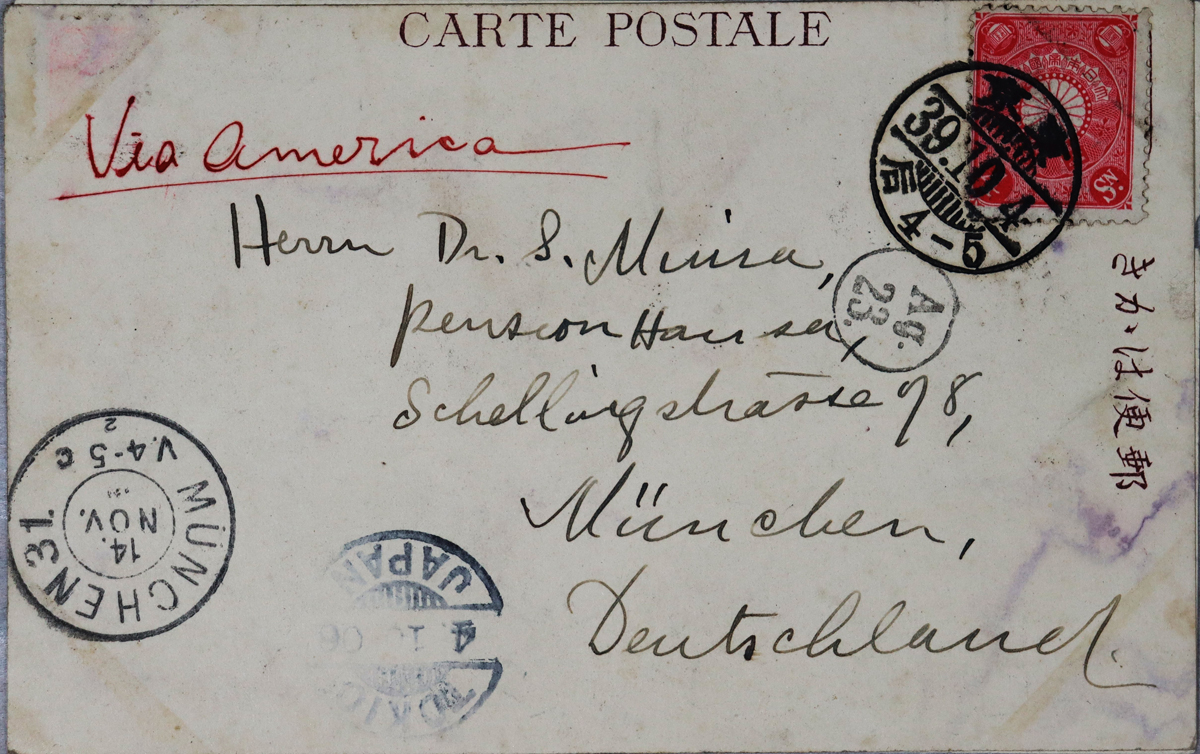 CARTE POSTALE
Via America
Herrn Dr. S. Miura,
Pension Hansa,
Schellingstrasse 98,
München,
Deutschland.
東京
39.10.4
后4-5
Ag.
23.
きかは便郵
MÜNCHEN 31.
14.
NOV.
V.4-5
2
JAPAN
4.10.06
TOKIO